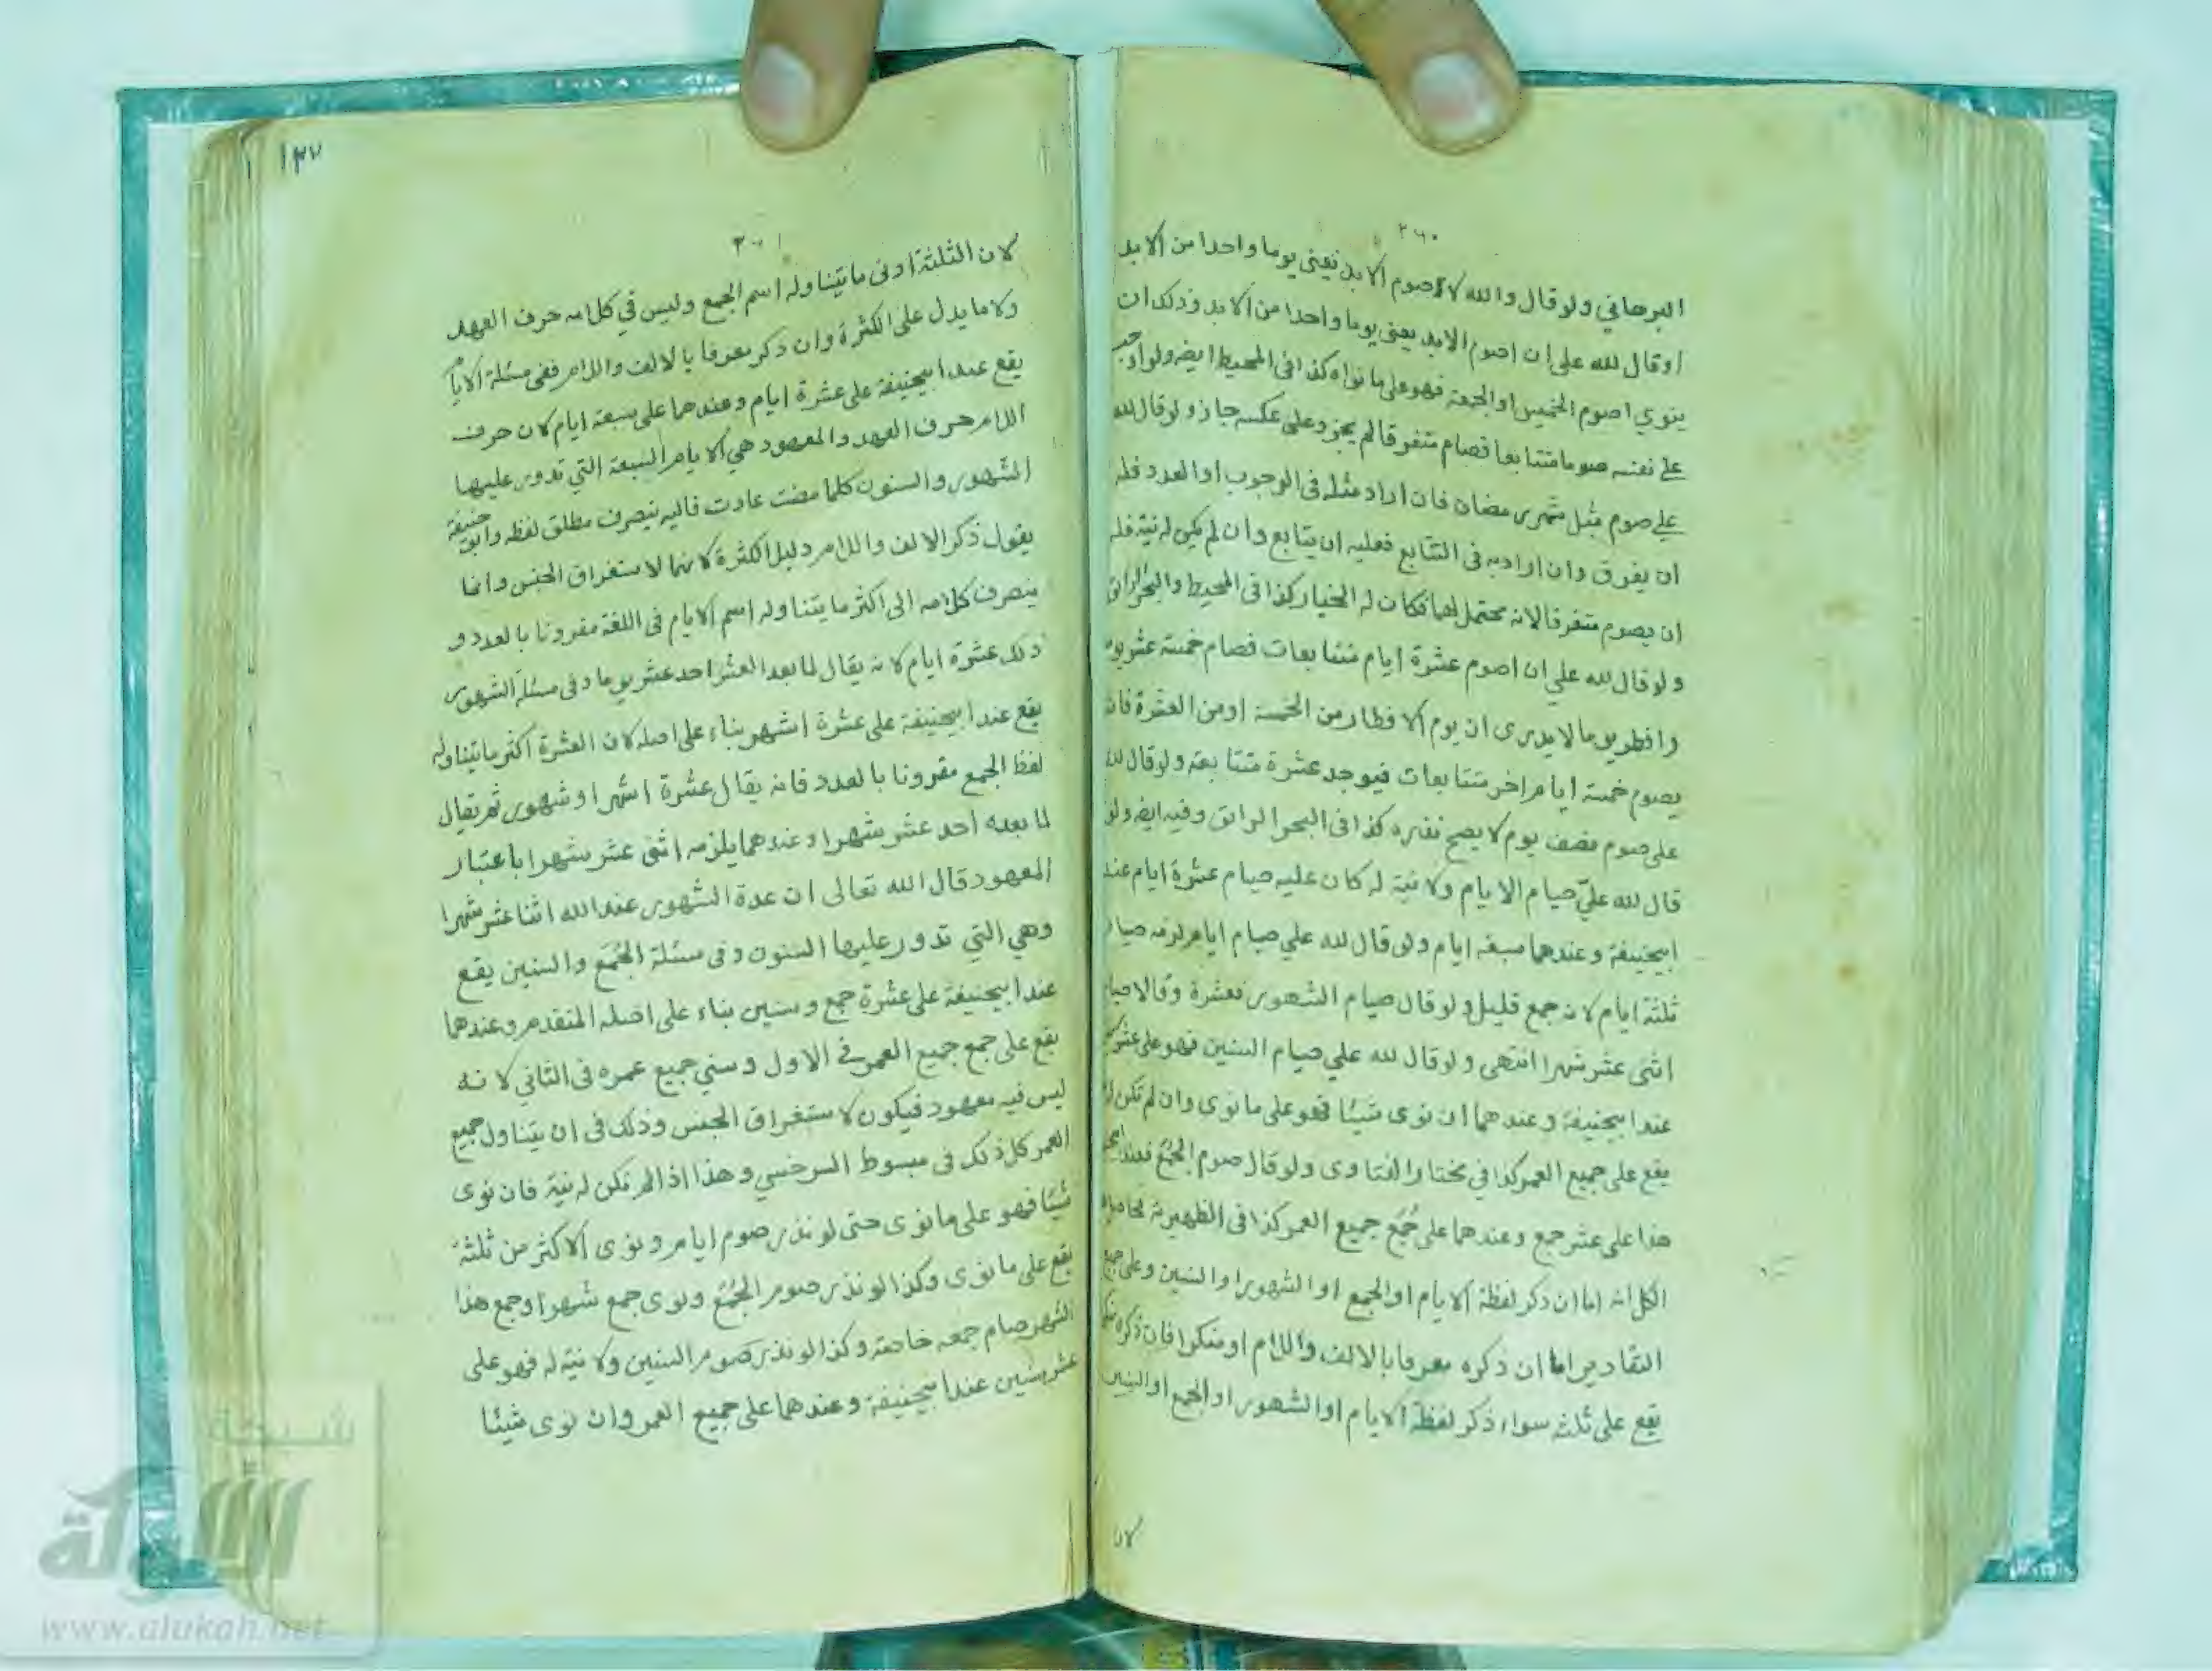 ٢٦٠
البرهاني ولو قال والله لاصوم الابد يعني يوما واحدا من الابد
او قال لله علي ان اصوم الابد يعني يوما واحدا من الابد وذلك ان
ينوي اصوم الخميس او الجمعة فهو على ما نواه كذا في المحيط ايضه ولو اوجب
على نفسه صوما متتابعا فصام متفرقا لم يجز وعلى عكسه جاز ولو قال لله
علي صوم مثل شهر رمضان فان اراد مثله في الوجوب او العدد فله
ان يفرق وان اراد به في التتابع فعليه ان يتابع وان لم يكن له نية فله
ان يصوم متفرقا لانه محتمل لهما فكان له الخيار كذا في المحيط والبحر الرائق
ولو قال لله علي ان اصوم عشرة ايام متتابعات فصام خمسة عشر يوما
وافطر يوما لا يدرى ان يوم الافطار من الخمسة او من العشرة فانه
يصوم خمسة ايام اخر متتابعات فيوجد عشرة متتابعة ولو قال لله
علي صوم نصف يوم لا يصح نذره كذا في البحر الرائق وفيه ايضه ولو
قال لله عليّ صيام الايام ولا نية له كان عليه صيام عشرة ايام عند
ابيحنيفة وعندهما سبعة ايام ولو قال لله علي صيام ايام لزمه صيام
ثلثة ايام لانه جمع قليل ولو قال صيام الشهور فعشرة وقالا صيام
اثنى عشر شهرا انتهى ولو قال لله علي صيام السنين فهو على عشر
عند ابيحنيفة وعندهما ان نوى شيئا فهو على ما نوى وان لم تكن له
يقع على جميع العمر كذا في مختار الفتاوى ولو قال صوم الجُمَع فعند
هذا على عشر جمع وعندهما على جُمَع جميع العمر كذا في الظهيرية
الكل انه اما ان ذكر لفظة الايام او الجمع او الشهور او السنين وعلى جميع
التقادير اما ان ذكره معرفا بالالف واللام او منكرا فان ذكره
يقع على ثلثه سواء ذكر لفظة الايام او الشهور او الجمع او السنين
لان
١٣٧
٢٦١
لان الثلثة ادنى ما يتناوله اسم الجمع وليس في كلامه حرف العهد
ولا ما يدل على الكثرة وان ذكر معرفا بالالف واللام ففي مسئلة الايام
يقع عند ابيحنيفة على عشرة ايام وعندهما على سبعة ايام لان حرف
اللام حرف العهد والمعهود هي الايام السبعة التي تدور عليها
الشهور والسنون كلما مضت عادت فاليه ينصرف مطلق لفظه وابو حنيفة
يقول ذكر الالف واللام دليل الكثرة لانهما لاستغراق الجنس وانما
ينصرف كلامه الى اكثر ما يتناوله اسم الايام في اللغة مقرونا بالعدد و
ذلك عشرة ايام لانه يقال لما بعد العشر احد عشر يوما وفي مسئلة الشهور
يقع عند ابيحنيفة على عشرة اشهر بناء على اصله لان العشرة اكثر ما يتناوله
لفظ الجمع مقرونا بالعدد فانه يقال عشرة اشهر او شهور ثم يقال
لما بعده احد عشر شهرا وعندهما يلزمه اثنى عشر شهرا باعتبار
المعهود قال الله تعالى ان عدة الشهور عند الله اثنا عشر شهرا
وهي التي تدور عليها السنون وفي مسئلة الجُمَع والسنين يقع
عند ابيحنيفة على عشرة جمع وسنين بناء على اصله المتقدم وعندهما
يقع على جمع جميع العمر في الاول وسني جميع عمره في الثاني لانه
ليس فيه معهود فيكون لاستغراق الجنس وذلك في ان يتناول جميع
العمر كل ذلك في مبسوط السرخسي وهذا اذا لم تكن له نية فان نوى
شيئا فهو على ما نوى حتى لو نذر صوم ايام ونوى الاكثر من ثلثة
يقع على ما نوى وكذا لو نذر صوم الجُمَع ونوى جمع شهر او جمع هذا
الشهر صام جمعه خاصة وكذا لو نذر صوم السنين ولا نية له فهو على
عشر سنين عند ابيحنيفة وعندهما على جميع العمر وان نوى شيئا
شبكة
الألوكة
www.alukah.net